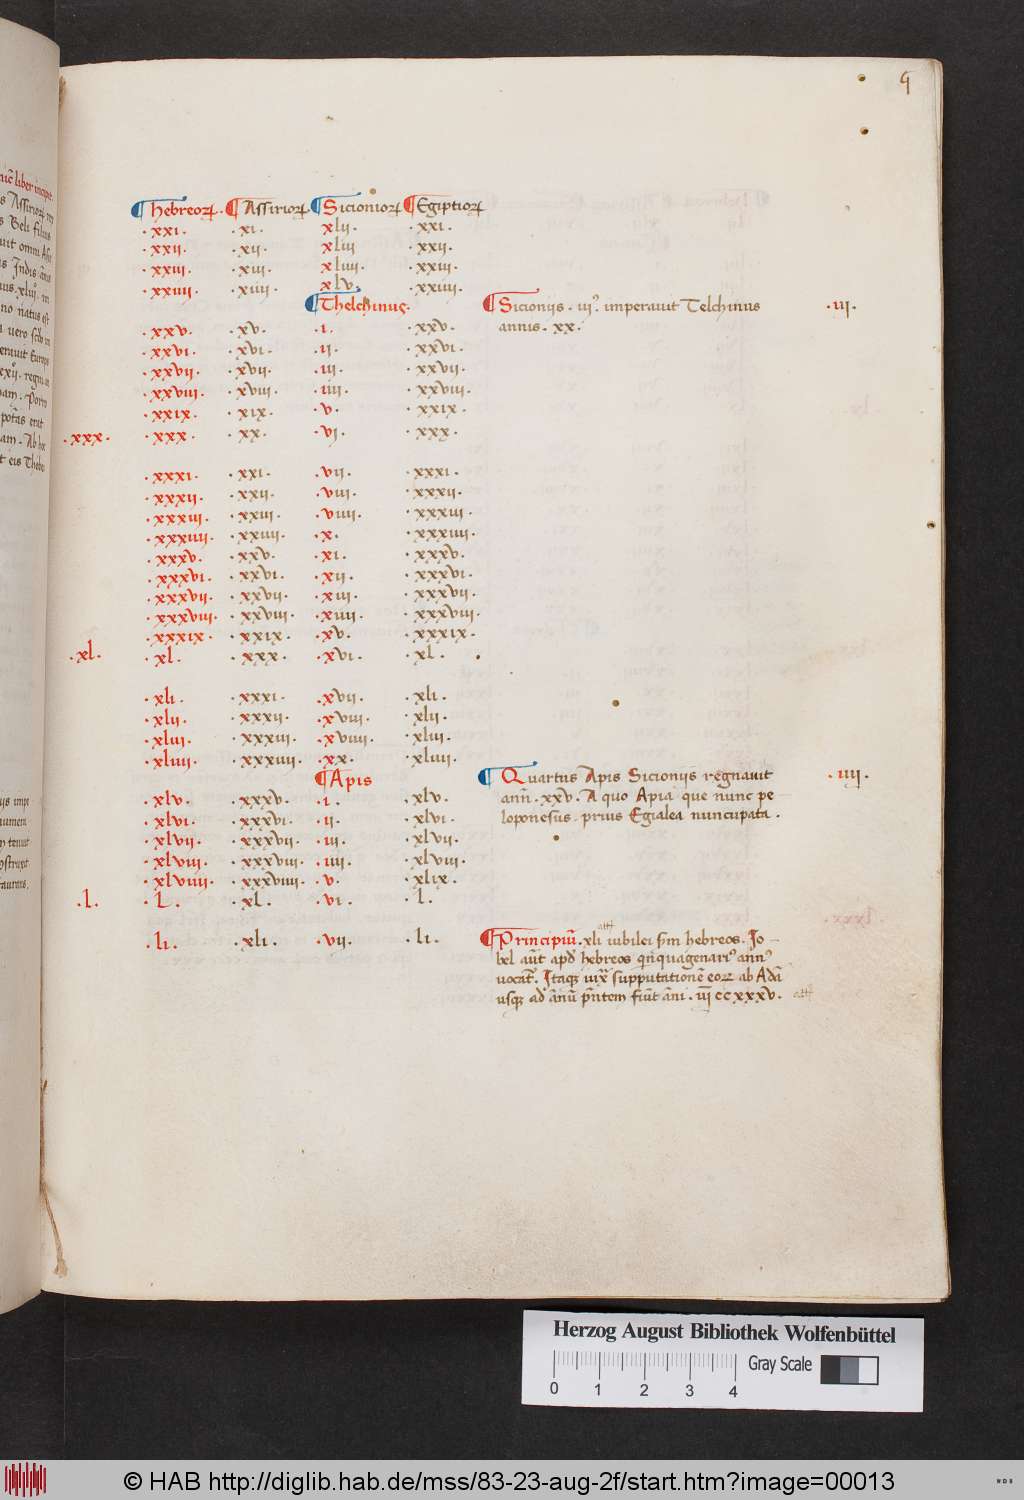 9
¶ Hebreoꝝ. ¶ Assirioꝝ ¶ Sicionioꝝ ¶ Egiptioꝝ
.xxi. .xi. xlii. .xxi.
.xxii. .xii. xliii .xxii.
.xxiii. .xiii. xliiii. .xxiii.
.xxiiii. .xiiii. xlv. .xxiiii.
¶ Thelchinus. ¶ Sicioniis. iii⁹. imperavit Telchinus .iii.
annis. xx.
.xxv. .xv. .i. .xxv.
.xxvi. .xvi. .ii. .xxvi.
.xxvii. .xvii. .iii. .xxvii.
.xxviii. .xviii. .iiii. .xxviii.
.xxix. .xix. .v. .xxix.
.xxx. .xxx. .xx. .vi. .xxx.
.xxxi. .xxi. .vii. .xxxi.
.xxxii. .xxii. .viii. .xxxii.
.xxxiii. .xxiii. .viiii. .xxxiii.
.xxxiiii. .xxiiii. .x. .xxxiiii.
.xxxv. .xxv. .xi. .xxxv.
.xxxvi. .xxvi. .xii. .xxxvi.
.xxxvii. .xxvii. .xiii. .xxxvii.
.xxxviii. .xxviii. .xiiii. .xxxviii.
.xxxix. .xxix. .xv. .xxxix.
.xl. .xl. .xxx. .xvi. .xl.
.xli. .xxxi. .xvii. .xli.
.xlii. .xxxii. .xviii. .xlii.
.xliii. .xxxiii. .xviiii. .xliii.
.xliiii. .xxxiiii. .xx. .xliiii.
¶ Apis ¶ Quartus Apis Sicioniis regnavit .iiii.
.xlv. .xxxv. .i. .xlv. ann̄. xxv. A quo Apia que nunc pe
.xlvi. .xxxvi. .ii. .xlvi. loponesus. prius Egialea nuncupata.
.xlvii. .xxxvii. .iii. .xlvii.
.xlviii. .xxxviii. .iiii. .xlviii.
.xlviiii. .xxxviiii. .v. .xlix.
.l. .L. .xl. .vi. .l.
.li. .xli. .vii. .li. ¶ Principiū. xli iubilei scd̄m hebreos. Io
bel aūt apd̄ hebreos qīnquagenari⁹ ann⁹
vocat̄. Itaqꝫ iuxͣ supputationē eoꝝ ab Adā
usqꝫ ad ānū p̄ntem fiūt āni. iii ccxxxv.
Herzog August Bibliothek Wolfenbüttel
Gray Scale
0 1 2 3 4
© HAB http://diglib.hab.de/mss/83-23-aug-2f/start.htm?image=00013